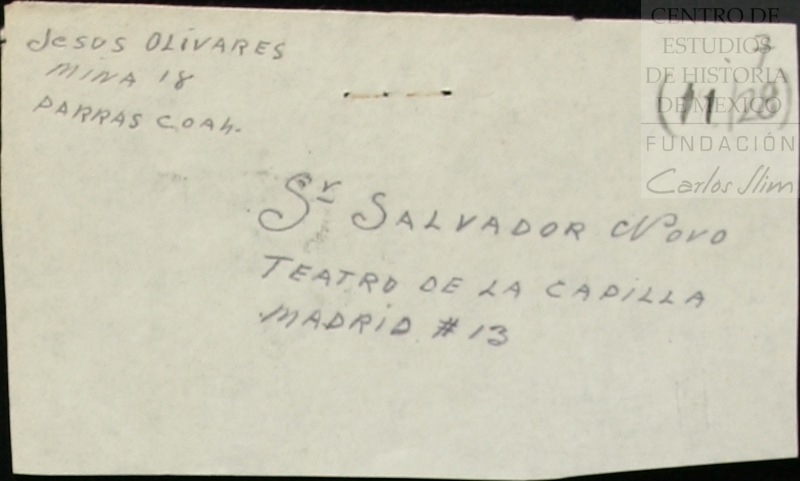 Jesus OLIVARES
MINA 18
PARRAS COAH.
(11/28)
Sr SALVADOR NOVO
TEATRO DE LA CAPILLA
MADRID # 13
CENTRO DE
ESTUDIOS
DE HISTORIA
DE MÉXICO
FUNDACIÓN
Carlos Slim